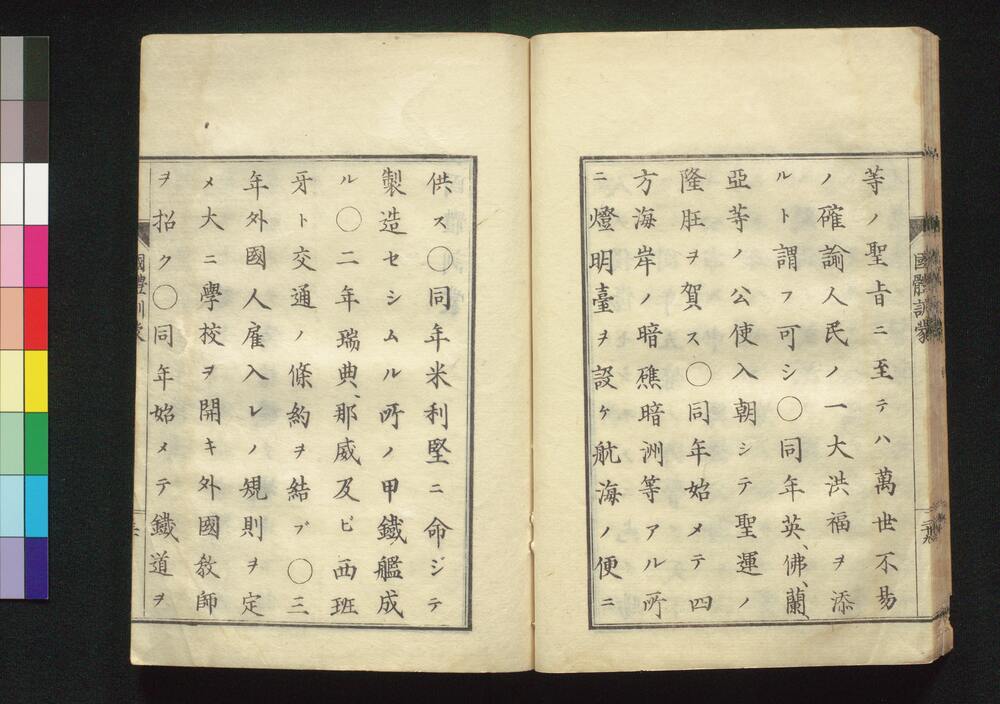 等ノ聖旨ニ至テハ萬世不易
ノ確論人民ノ一大洪福ヲ添
ルト謂フ可シ〇同年英、佛、蘭、
亞等ノ公使入朝シテ聖運ノ
隆旺ヲ賀ス〇同年始メテ四
方海岸ノ暗礁暗洲等アル所
ニ燈明臺ヲ設ケ航海ノ便ニ
國體訓蒙
供ス〇同年米利堅ニ命ジテ
製造セシムル所ノ甲鐵艦成
ル〇二年瑞典、那威及ビ西班
牙ト交通ノ條約ヲ結ブ〇三
年外國人雇入レノ規則ヲ定
メ大ニ學校ヲ開キ外國敎師
ヲ招ク〇同年始メテ鐵道ヲ
國體訓蒙